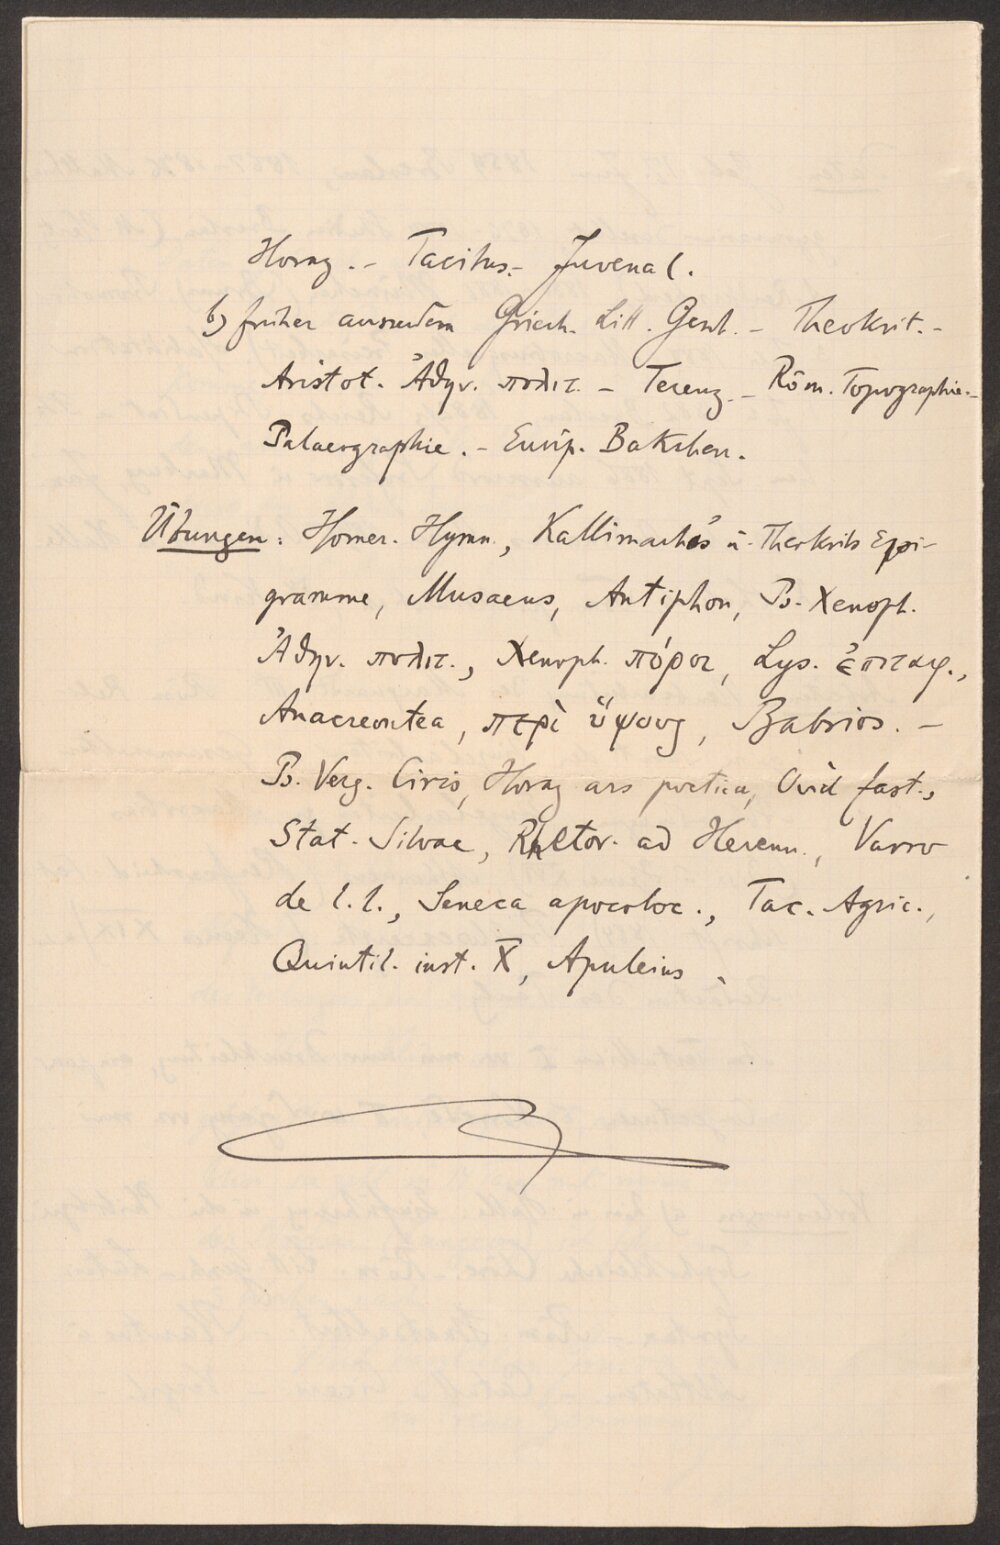 Horaz. - Tacitus. - Juvenal.
b) früher ausserdem Griech. Litt. Gesch. - Theokrit. -
Aristot. Ἀθην. πολιτ. - Terenz. - Röm. Topographie. -
Palaeographie. - Eurip. Bakchen.
Übungen: Homer. Hymn., Kallimachos u. Theokrits Epi-
gramme, Musaeus, Antiphon, Ps. Xenoph.
Ἀθην. πολιτ., Xenoph. πόροι, Lys. ἐπιταφ.,
Anacreontea, περὶ ὕψους, Babrios. -
Ps. Verg. Ciris, Horaz ars poetica, Ovid fast.,
Stat. Silvae, Rhetor. ad Herenn., Varro
de l. l., Seneca apocoloc., Tac. Agric.,
Quintil. inst. X, Apuleius.